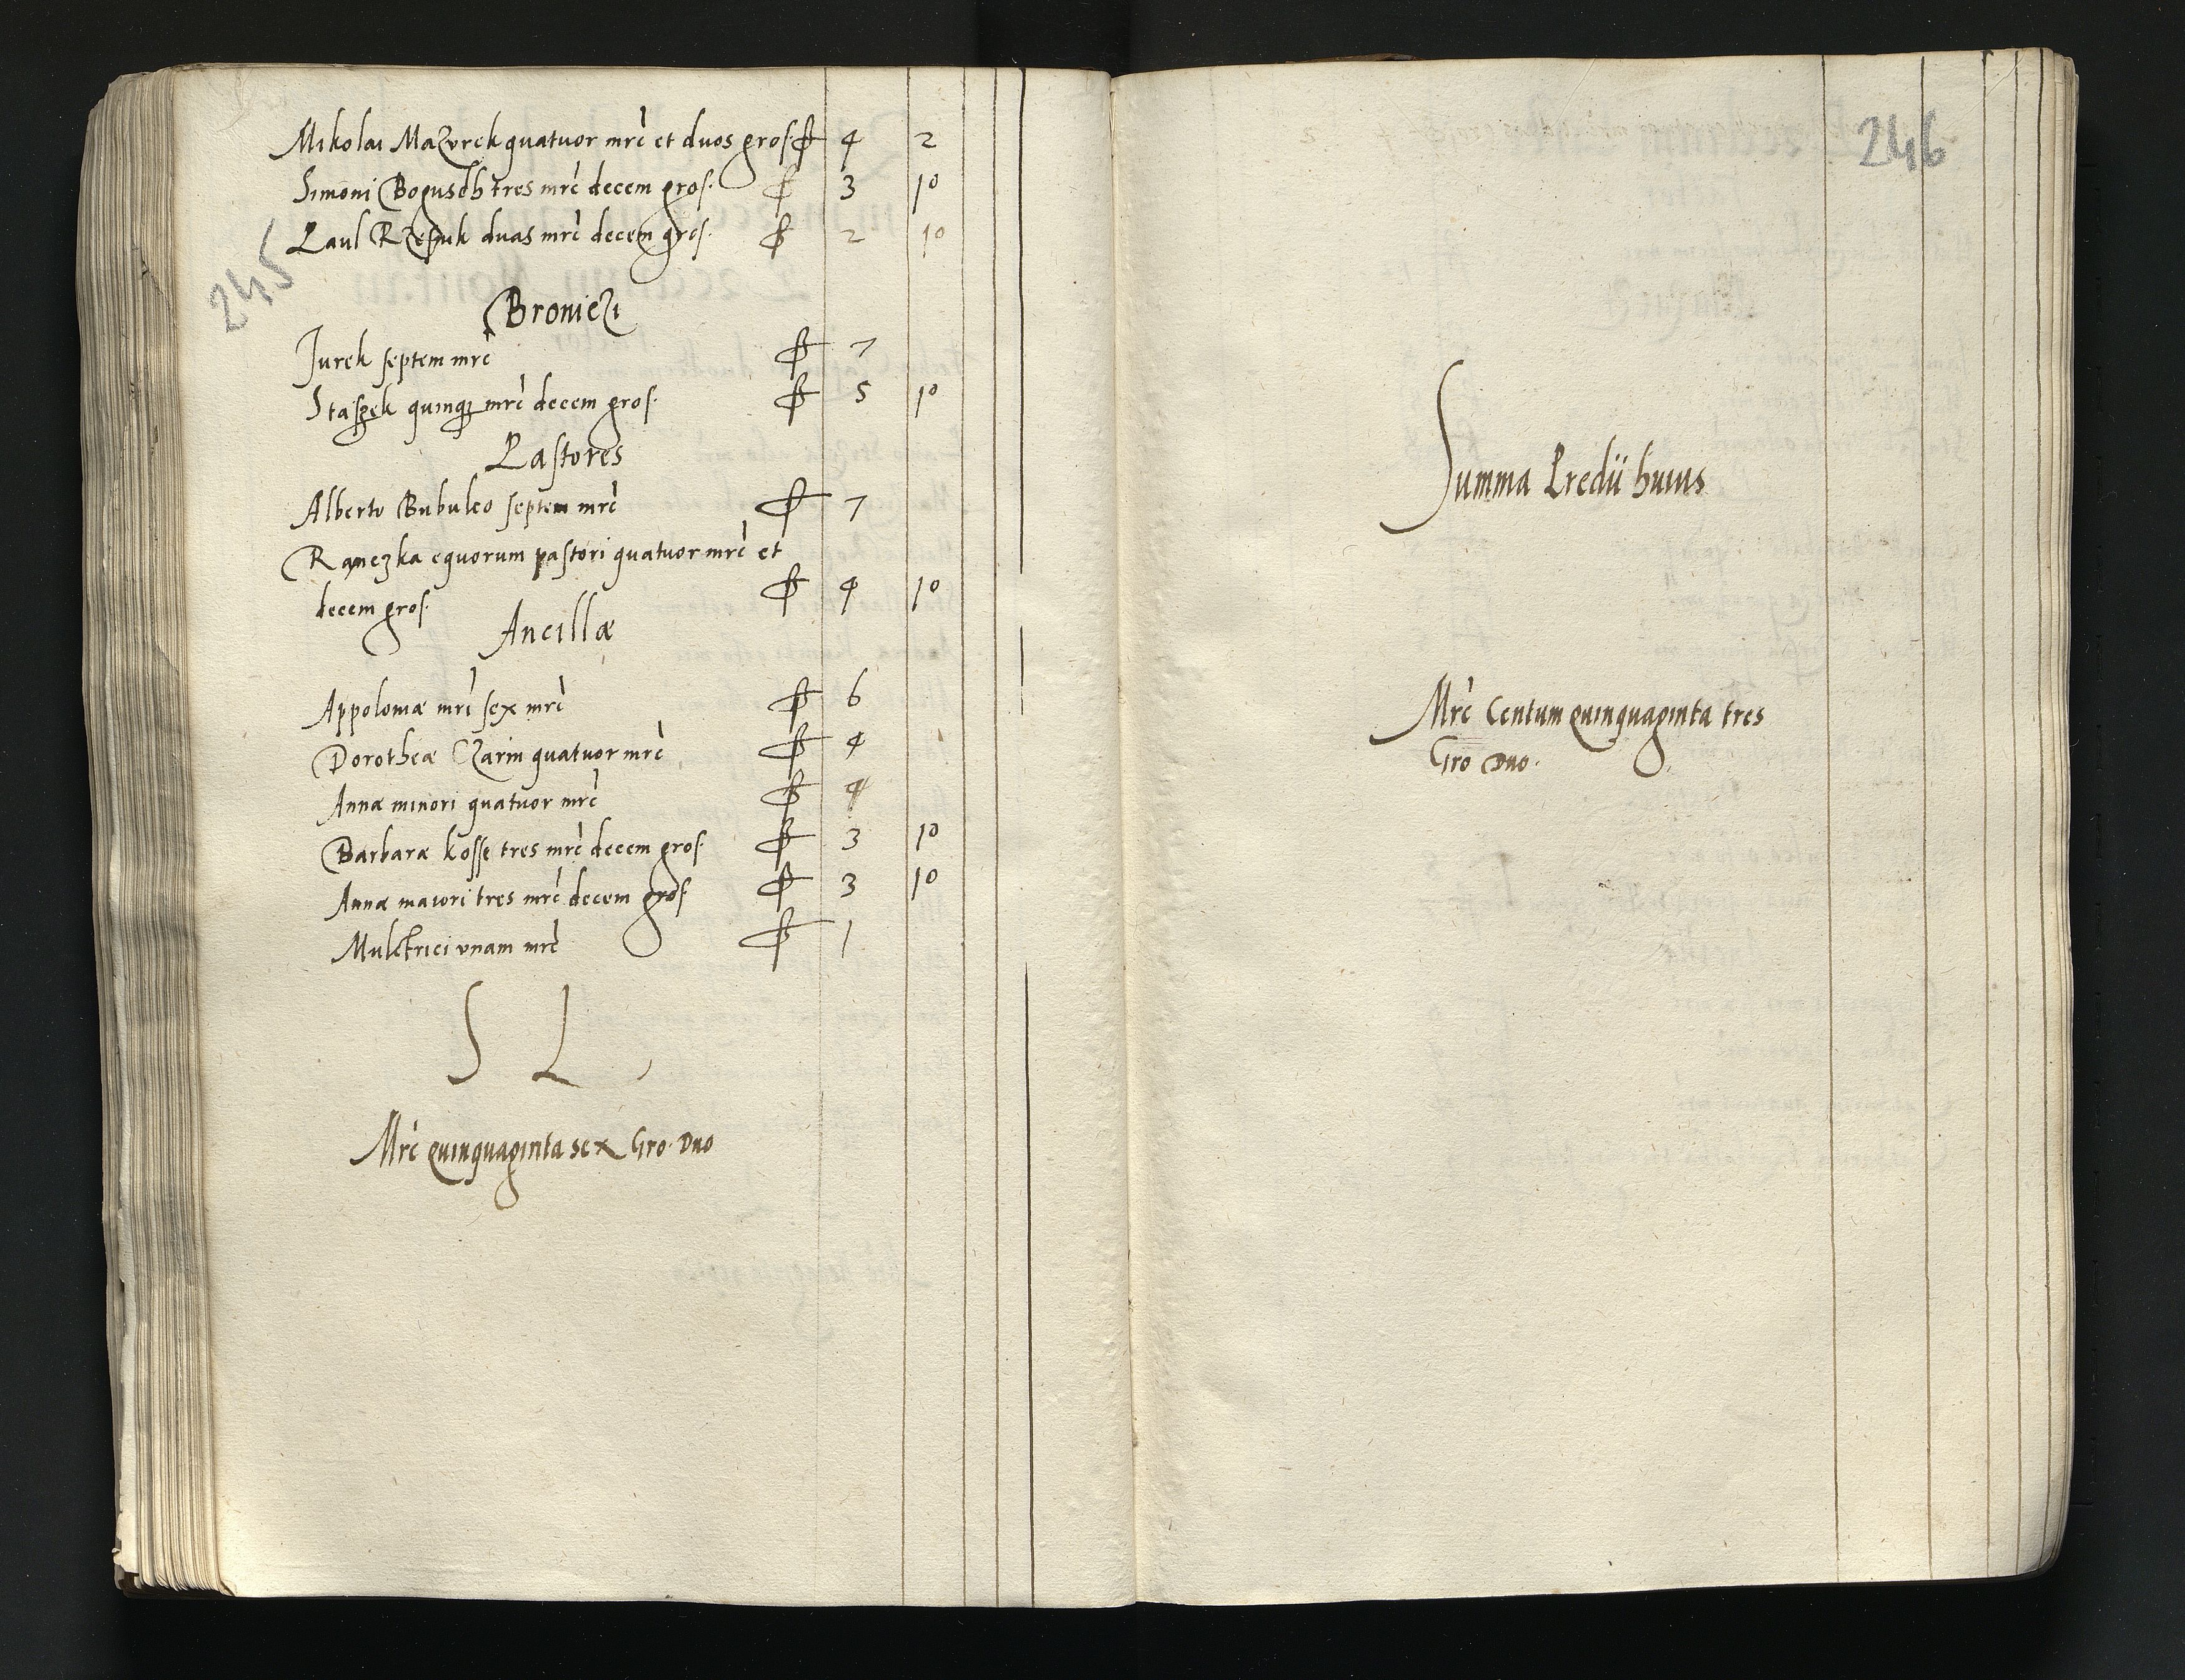 Mikolai Mazurek quatuor mrc et duos gros 4 2
Simoni Bogusch tres mrc decem gros. 3 10
Paul duas mrc decem gros. 2 10
245
Broniczi
Jurek septem mrc 7
Staszek quinq3 mrc decem gros. 5 10
Pastores
Alberto Bubulco septem mrc 7
equorum pastori quatuor mrc et
decem gros. 4 10
Ancillæ
Appoloniæ mri sex mrc 6
Dorotheæ Czarin quatuor mrc 4
Annæ minori quatuor mrc 4
Barbaræ kosse tres mrc decem gros. 3 10
Annæ maiori tres mrc decem gros 3 10
Mulctrici vnam mrc 1
S L
Mrc quinquaginta sex Gro. Duo
246
Summa Predii huius
Mrc Centum quinquaginta tres
Gro Duo.